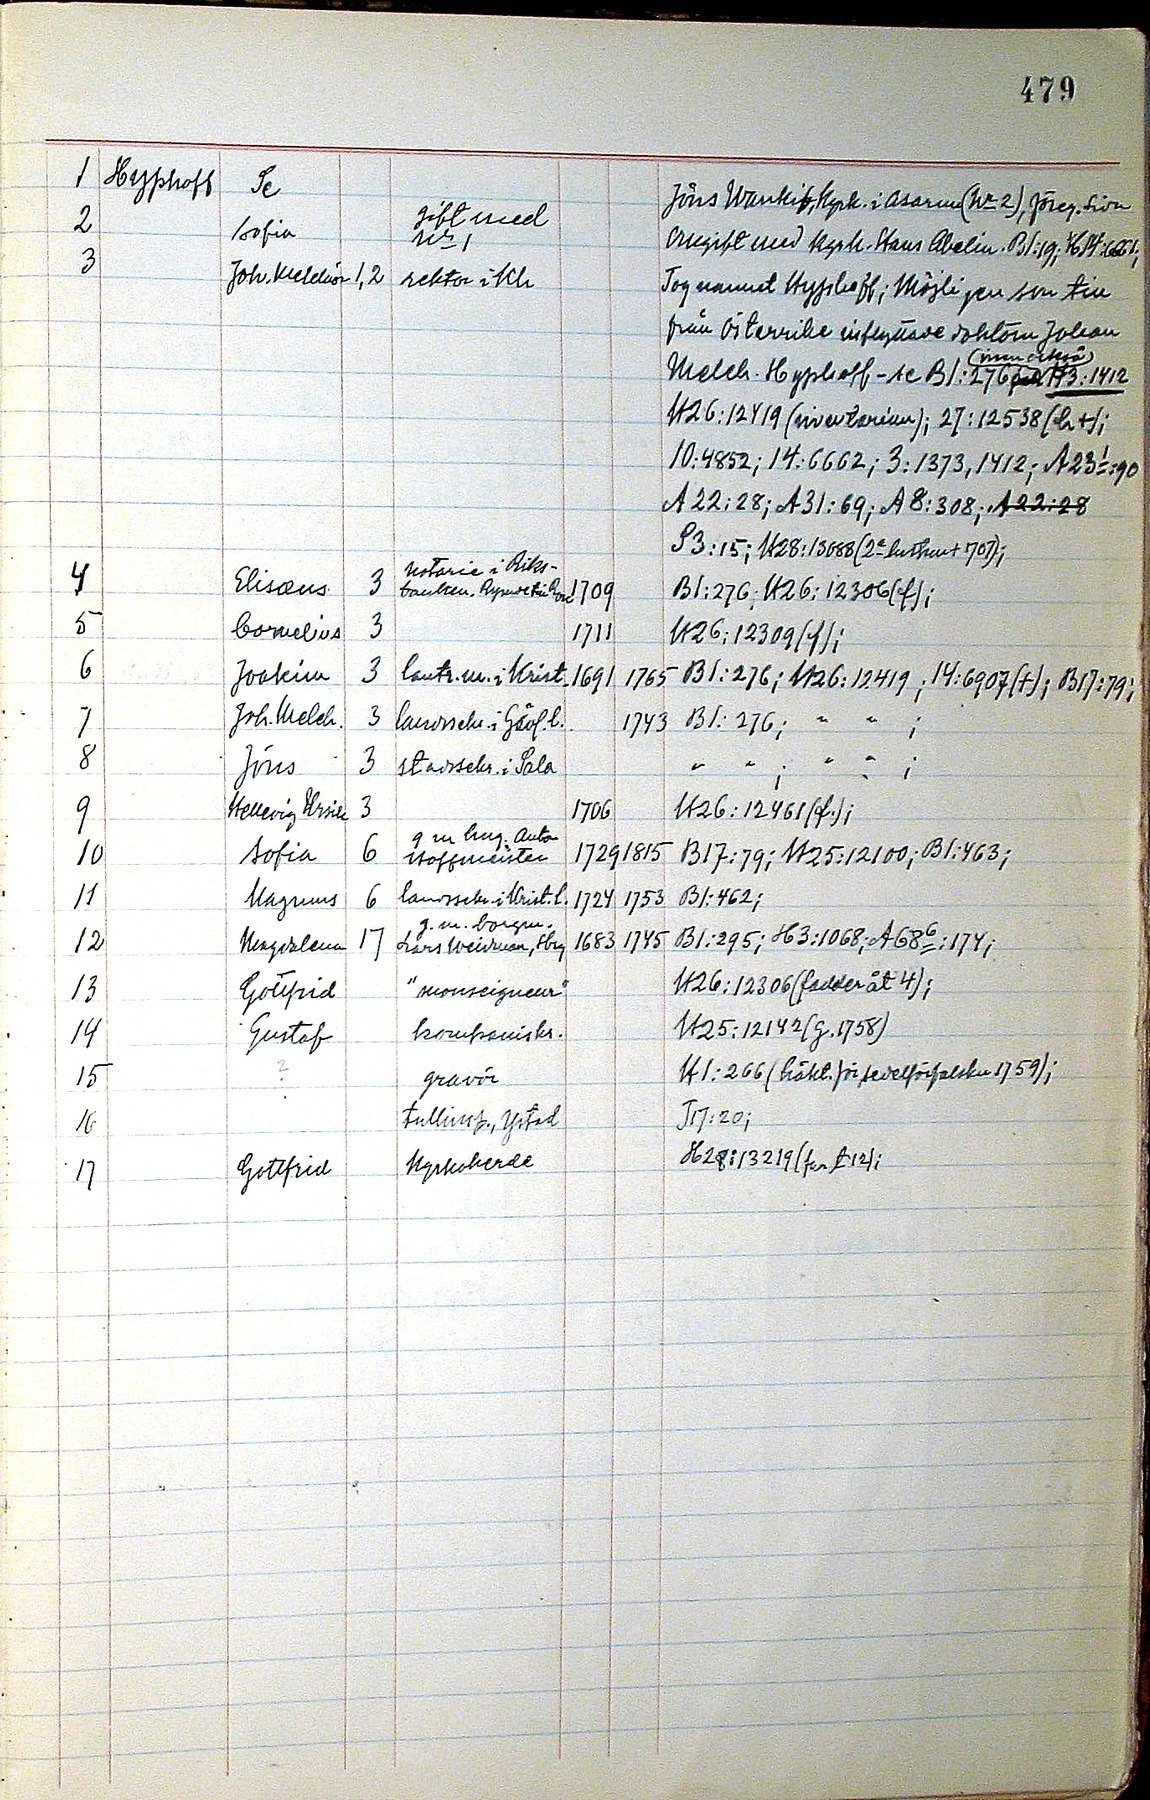 479
1 Hyphoff Se Jöns Wankif, Kyrk. i Asarum (Nr 2), föreg. Sion
2 Sofia gift med Nr 1 Omgift med kyrk. Hans Abelin. B1:19;
3 Joh. Melchior 1,2 rektor i Kh Tog namnet Hyphoff; Möjligen son till
från Österrike inflyttade doktorn Johan
Melch. Hyphoff - se B1:276 H3:1412
H26:12419 (inventarium); 27:12538 (h+);
10:4852; 14:6662; 3:1373, 1412; A23 1:90
A22:28; A31:69; A8:308; A22:28
S3:15; H28:13088 (2a hustrun + 707);
4 Elisæus 3 notarie i Riks-
banken. 1709 B1:276; H26:12306 (f);
5 Cornelius 3 1711 H26:12309 (f);
6 Joakim 3 lantr.m. i Krist. 1691 1765 B1:276; H26:12419; 14:6907 (+); B17:79;
7 Joh. Melch. 3 landssekr. i Gävl. l. 1743 B1:276; " " ;
8 Jöns 3 stadssekr. i Sala " " ; " " ;
9 Hedevig 3 1706 H26:12461 (f.);
10 Sofia 6 g m Aug. Anto
Hoffmeister 1729 1815 B17:79; H25:12100; B1:463;
11 Magnus 6 landssekr. i Krist. l. 1724 1753 B1:462;
12 Magdalena 17 g. m. borgm.
Lars Weidman, Hbg 1683 1745 B1:295; H3:1068; A68 6:174;
13 Gottfrid "monseigneur" H26:12306 (fadder åt 4);
14 Gustaf kompaniskr. H25:12142 (g. 1758)
15 ? gravör H1:266 (häkt. för sedelförfalskn 1759);
16 tullinsp., Ystad J17:20;
17 Gottfrid Kyrkoherde H28:13219 (far t 12);